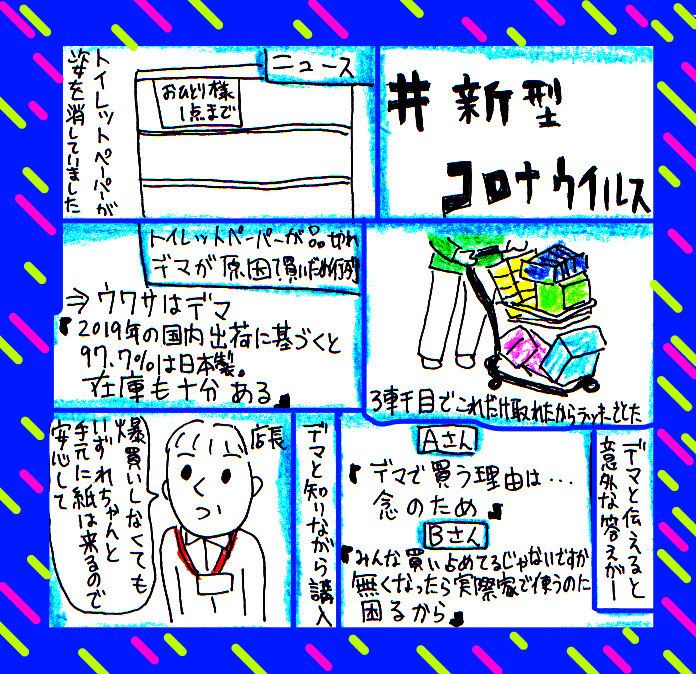 #新型
コロナウイルス
ニュース
おひとり様
1点まで
トイレットペーパーが
姿を消していました
3軒目でこれだけ取れたからラッキーでした
トイレットペーパーが品切れ
デマが原因で買いだめ行列
⇒ウワサはデマ
『2019年の国内出荷に基づくと
97.7%は日本製。
在庫も十分ある』
デマと伝えると
意外な答えがー
Aさん
『デマで買う理由は…
念のため』
Bさん
『みんな買い占めてるじゃないですか
無くなったら実際家で使うのに
困るから』
デマと知りながら購入
店長
爆買いしなくても
いずれちゃんと
手元に紙は来るので
安心して